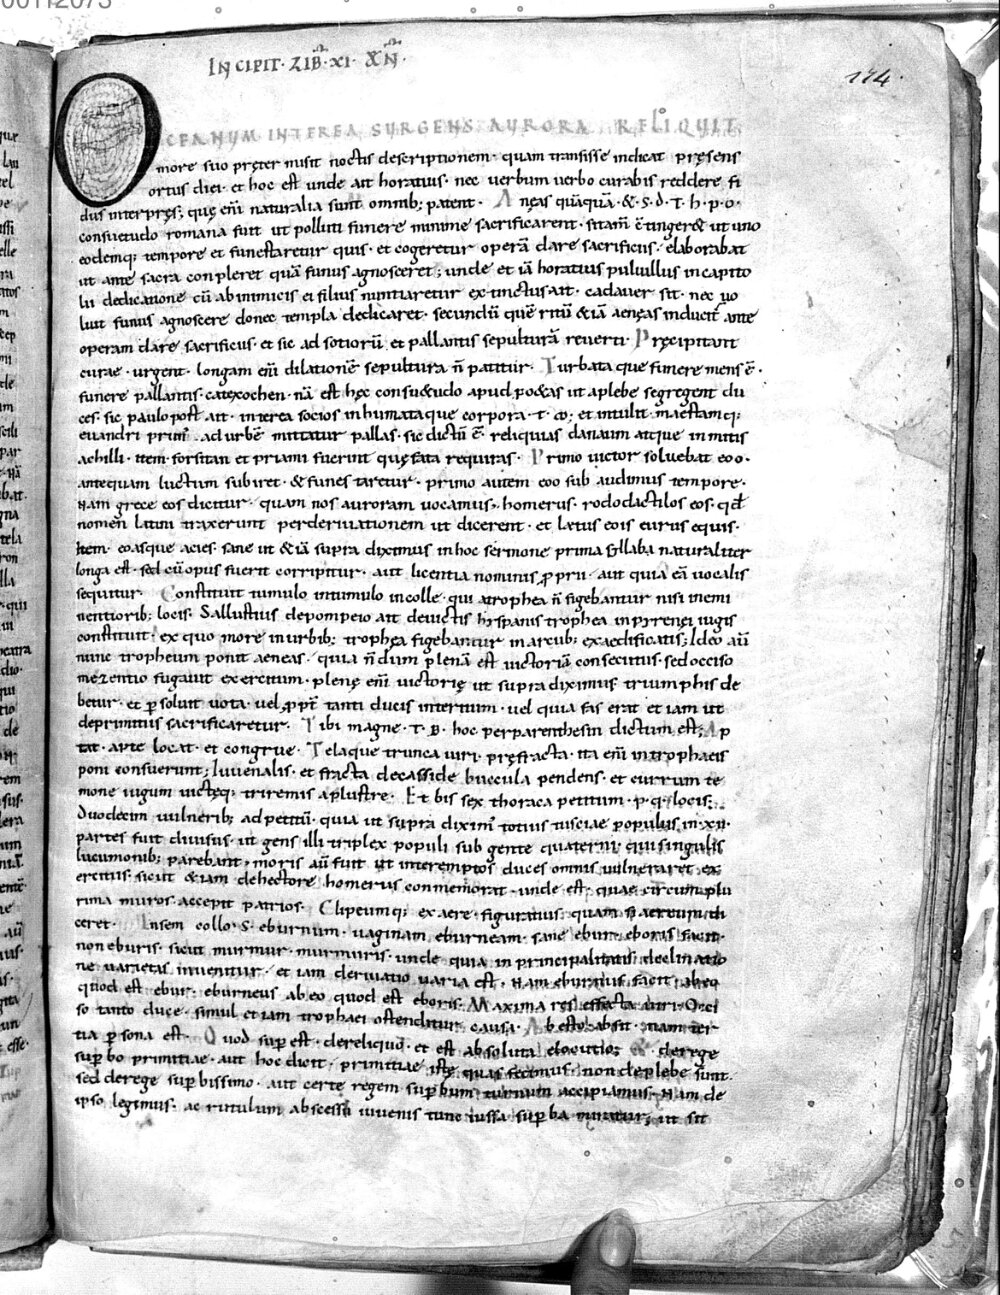 INCIPIT · LIB̅ · XI · EN̅ ·
174 ·
OCEANUM INTEREA SURGENS AURORA RELIQUIT
more suo pręter misit noctis descriptionem · quam transisse indicat pręsens
ortus diei · et hoc est unde ait horatius · nec uerbum uerbo curabis reddere fi
dus interpres; quę eni̅ naturalia sunt omnib; patent · Aeneas qua̅qua̅ · & · S · d · T · h · p · o ·
consuetudo romana fuit ut polluti funere minime sacrificarent · si tam̅ c̅tinger& ut uno
eodemq; tempore et funestaretur quis · et cogeretur opera̅ dare sacrificiis · elaborabat
ut ante sacra conpleret qua̅ funus agnosceret; unde et ia̅ horatius puluillus in capito
lii dedicatione cu̅ ab inimicis ei filius nuntiaretur extinctus ait · cadauer sit · nec uo
luit funus agnoscere donec templa dedicaret · secundu̅ que̅ ritu̅ &ia̅ aeneas inducit̅ ante
operam dare sacrificiis · et sic ad sotioru̅ et pallantis sepultura̅ reuerti · Pręcipitant
curae · urgent · longam eni̅ dilatione̅ sepultura n̅ patitur · Turbataque funere mens e̅ ·
funere pallantis · catexochen · na̅ est hęc consu&udo apud po&as ut a plebe segregent du
ces · sic paulo post ait · interea socios inhumataque corpora · t · m · et intulit · maestamq;
euandri primu̅ · ad urbe̅ mittatur pallas · sic dictu̅ e̅ reliquias danaum atque inmitis
achilli · item · forsitan et priami fuerint quę fata requiras · Primo uictor soluebat eoo ·
antequam luctum subiret · & funestaretur · primo autem eoo sub audimus tempore ·
nam grece eos dicitur · quam nos auroram uocamus · homerus · rododactilos eos · qd̅
nomen latini traxerunt per deriuationem ut dicerent · et lętus eois eurus equis ·
Item · eoasque acies · sane ut &ia̅ supra diximus in hoc sermone prima syllaba naturaliter
longa est · sed cu̅ opus fuerit corripitur · aut licentia nominis p̱ prii · aut quia ea̅ uocalis
sequitur · Constituit tumulo in tumulo in colle · qui a trophea n̅ figebantur nisi in emi
nentiorib; locis · Sallustius de pompeio ait deuictis hispanis trophea in pyrenei iugis
constituit · ex quo more in urbib; trophea figebantur in arcub; exaedificatis; Ideo au̅
nunc tropheum ponit aeneas · quia n̅ dum plena̅ est uictoria̅ consecutus · sed occiso
mezentio fugauit exercitum · plenę eni̅ uictorię ut supra diximus triumphis de
betur · et p̱soluit uota · uel p̱pt̅ tanti ducis interitum · uel quia fas erat etiam ut
deprimitiis sacrificaretur · Tibi magne · T · B · hoc per parenthesin dictum est; Ap
tat · apte locat · et congrue · Telaque trunca uiri · pręfracta · ita eni̅ in tropheis
poni consuerunt; Iuuenalis · et fracta de casside buccula pendens · et currum te
mone iugum uictęq; triremis aplustre · Et bis sex thoraca petitum · p · q · locis;
Duodecim uulnerib; ad petitu̅ · quia ut supra diximꝰ totius tusciae populus in · xii ·
partes fuit diuisus · ut gens illi triplex populi sub gente quaterni · qui singulis
lucumonib; parebant · moris au̅ fuit ut interemptos duces omnis uulneraret ex
ercitus · sicut &iam de hectore homerus conmemorat · unde est · quae circum plu
rima muros accepit patrios · Clipeumq; ex aere · figuratius · quam si aereum di
ceret · Ensem collo · S · eburnum · uaginam eburneam · sane ebur eboris facit ·
non eburis · sicut murmur · murmuris · unde quia in principalitatis declinatio
ne uarietas inuenitur · etiam deriuatio uaria est · nam eburnus facit ab eo
quod est ebur · eburneus ab eo quod est eboris · Maxima res effecta uiri · Occi
so tanto duce · simul etiam trophaei ostenditur causa · Abesto · absit · nam ter
tia p̱sona est · Quod sup̱ est · de reliquo · et est absoluta elocutio; & de rege
sup̱bo primitiae · aut hoc dicit · primitiae istę quas fecimus · non de plebe sunt ·
sed de rege sup̱bissimo · aut certe regem sup̱bum turnum accipiamus · nam de
ipso legimus · ac rutulum abscessu iuuenis tunc iussa sup̱ba miratur; ut sit